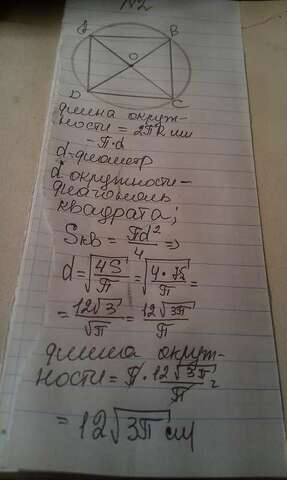 №2
A B
O
D C
длина окруж-
ности = 2πR или
= π·d
d-диаметр
d окружности-
диагональ
квадрата;
Sкв = πd²/4 =>
d = √(4S/π) = √(4·72/π) =
= 12√3/√π = 12√(3π)/π
длина окруж-
ности = π · 12√(3π)/π =
= 12√(3π) см